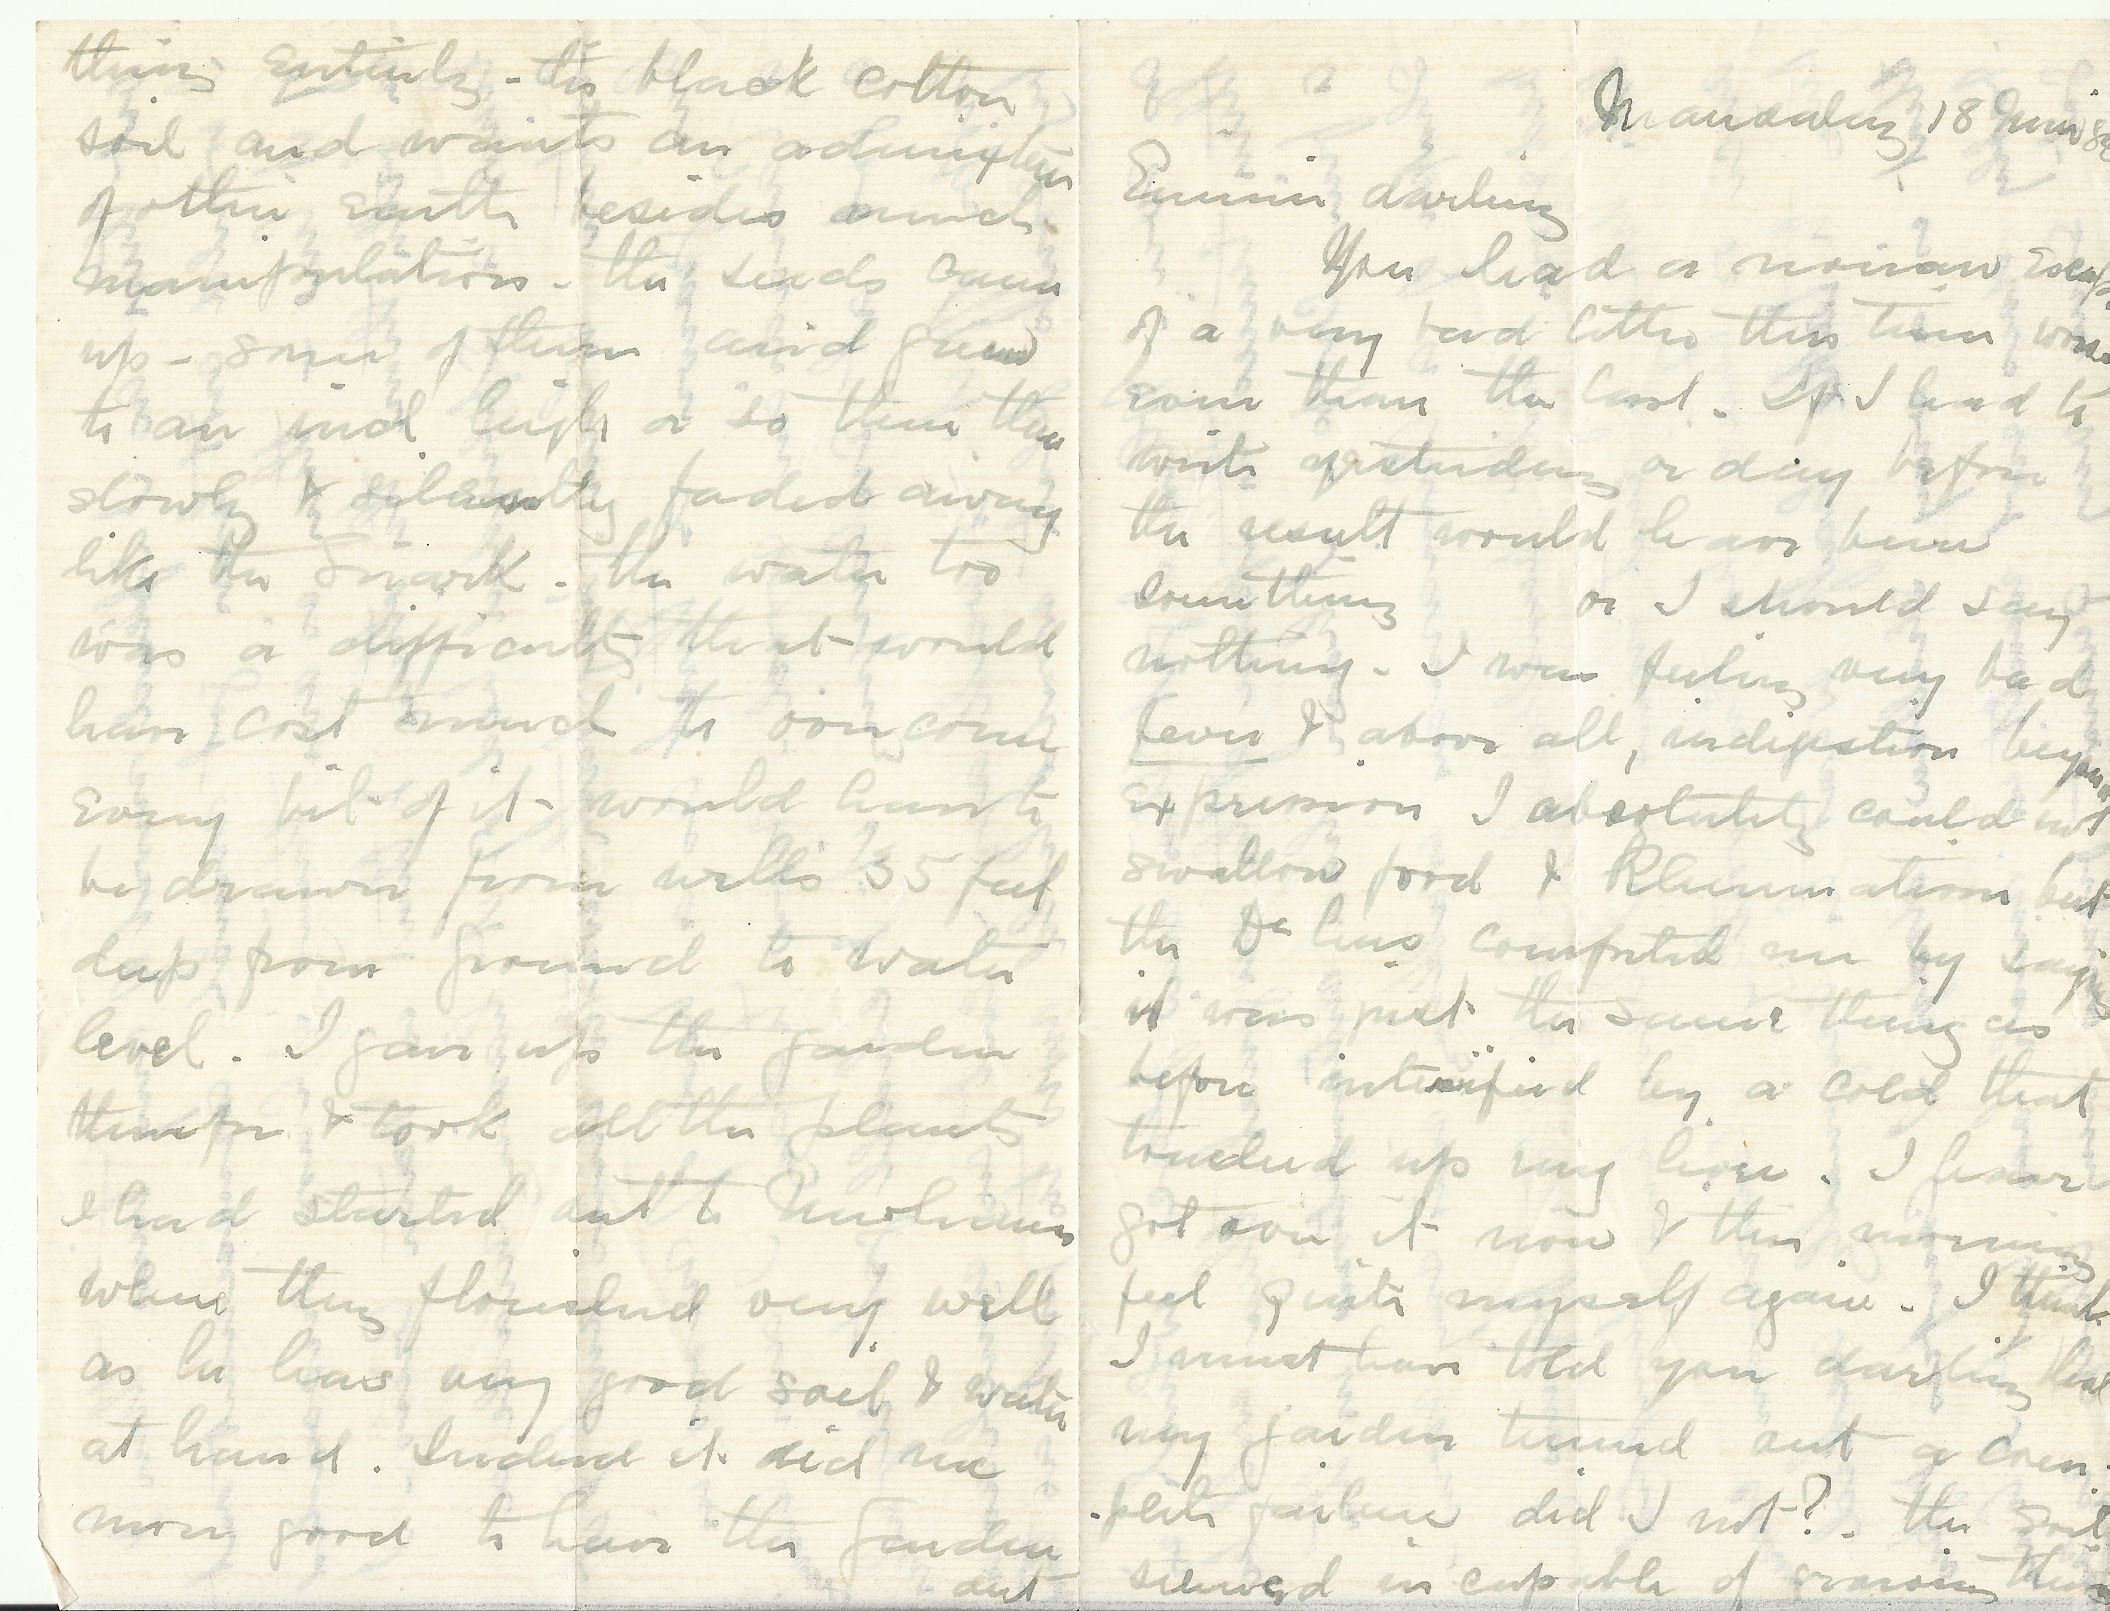 Mandalay 18 June 89
Emmie darling
You had a narrow escape
of a very bad letter this time worse
even than the last. If I had to
write yesterday or day before
the result would have been
something or I should say
nothing. I was feeling very bad
fever & above all, indigestion beyond
expression I absolutely could not
swallow food & Rheumatism but
the Dr has comforted me by saying
it was just the same thing as
before intensified by a cold that
touched up my liver. I have
got over it now & this morning
feel quite myself again. I think
I must have told you darling that
my garden turned out a com
-plete failure did I not? - the soil
seemed incapable of growing
thing entirely - tis black cotton
soil and wants an admixture
of other earth besides much
manipulation - the seeds came
up - some of them and grew
to an inch high or so then they
slowly & silently faded away
like the Snark - the water too
was a difficulty that would
have cost much to overcome
every bit of it would have to
be drawn from wells 35 feet
deep from ground to water
level. I gave up the garden
therefore & took all the plants
I had started out to
where they flourished very well
as he has very good soil & water
at hand. Indeed it did me
more good to have the garden
out